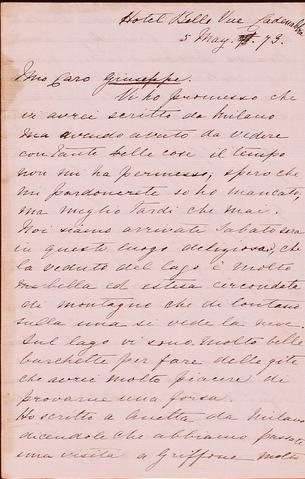 Hotel Belle Vue Cadenabbia
5 May. 73.
Mio Caro Giuseppe.
Vi ho promesso che
vi avrei scritto da Milano
ma avendo avuto da vedere
con tante belle cose il tempo
non mi ha permesso, spero che
mi perdonerete se ho mancato,
ma meglio tardi che mai.
Noi siamo arrivate Sabato sera
in questo luogo delizioso, che
la veduta del lago è molto
bella ed estesa circondata
di montagne che di lontano
sulla una si vede la neve
Sul lago vi sono molto belle
barchette per fare delle gite
che avrei molto piacere di
provarne una forsa.
Ho scritto a Anetta da Milano
dicendole che abbiamo passato
una visita a Griffone molto